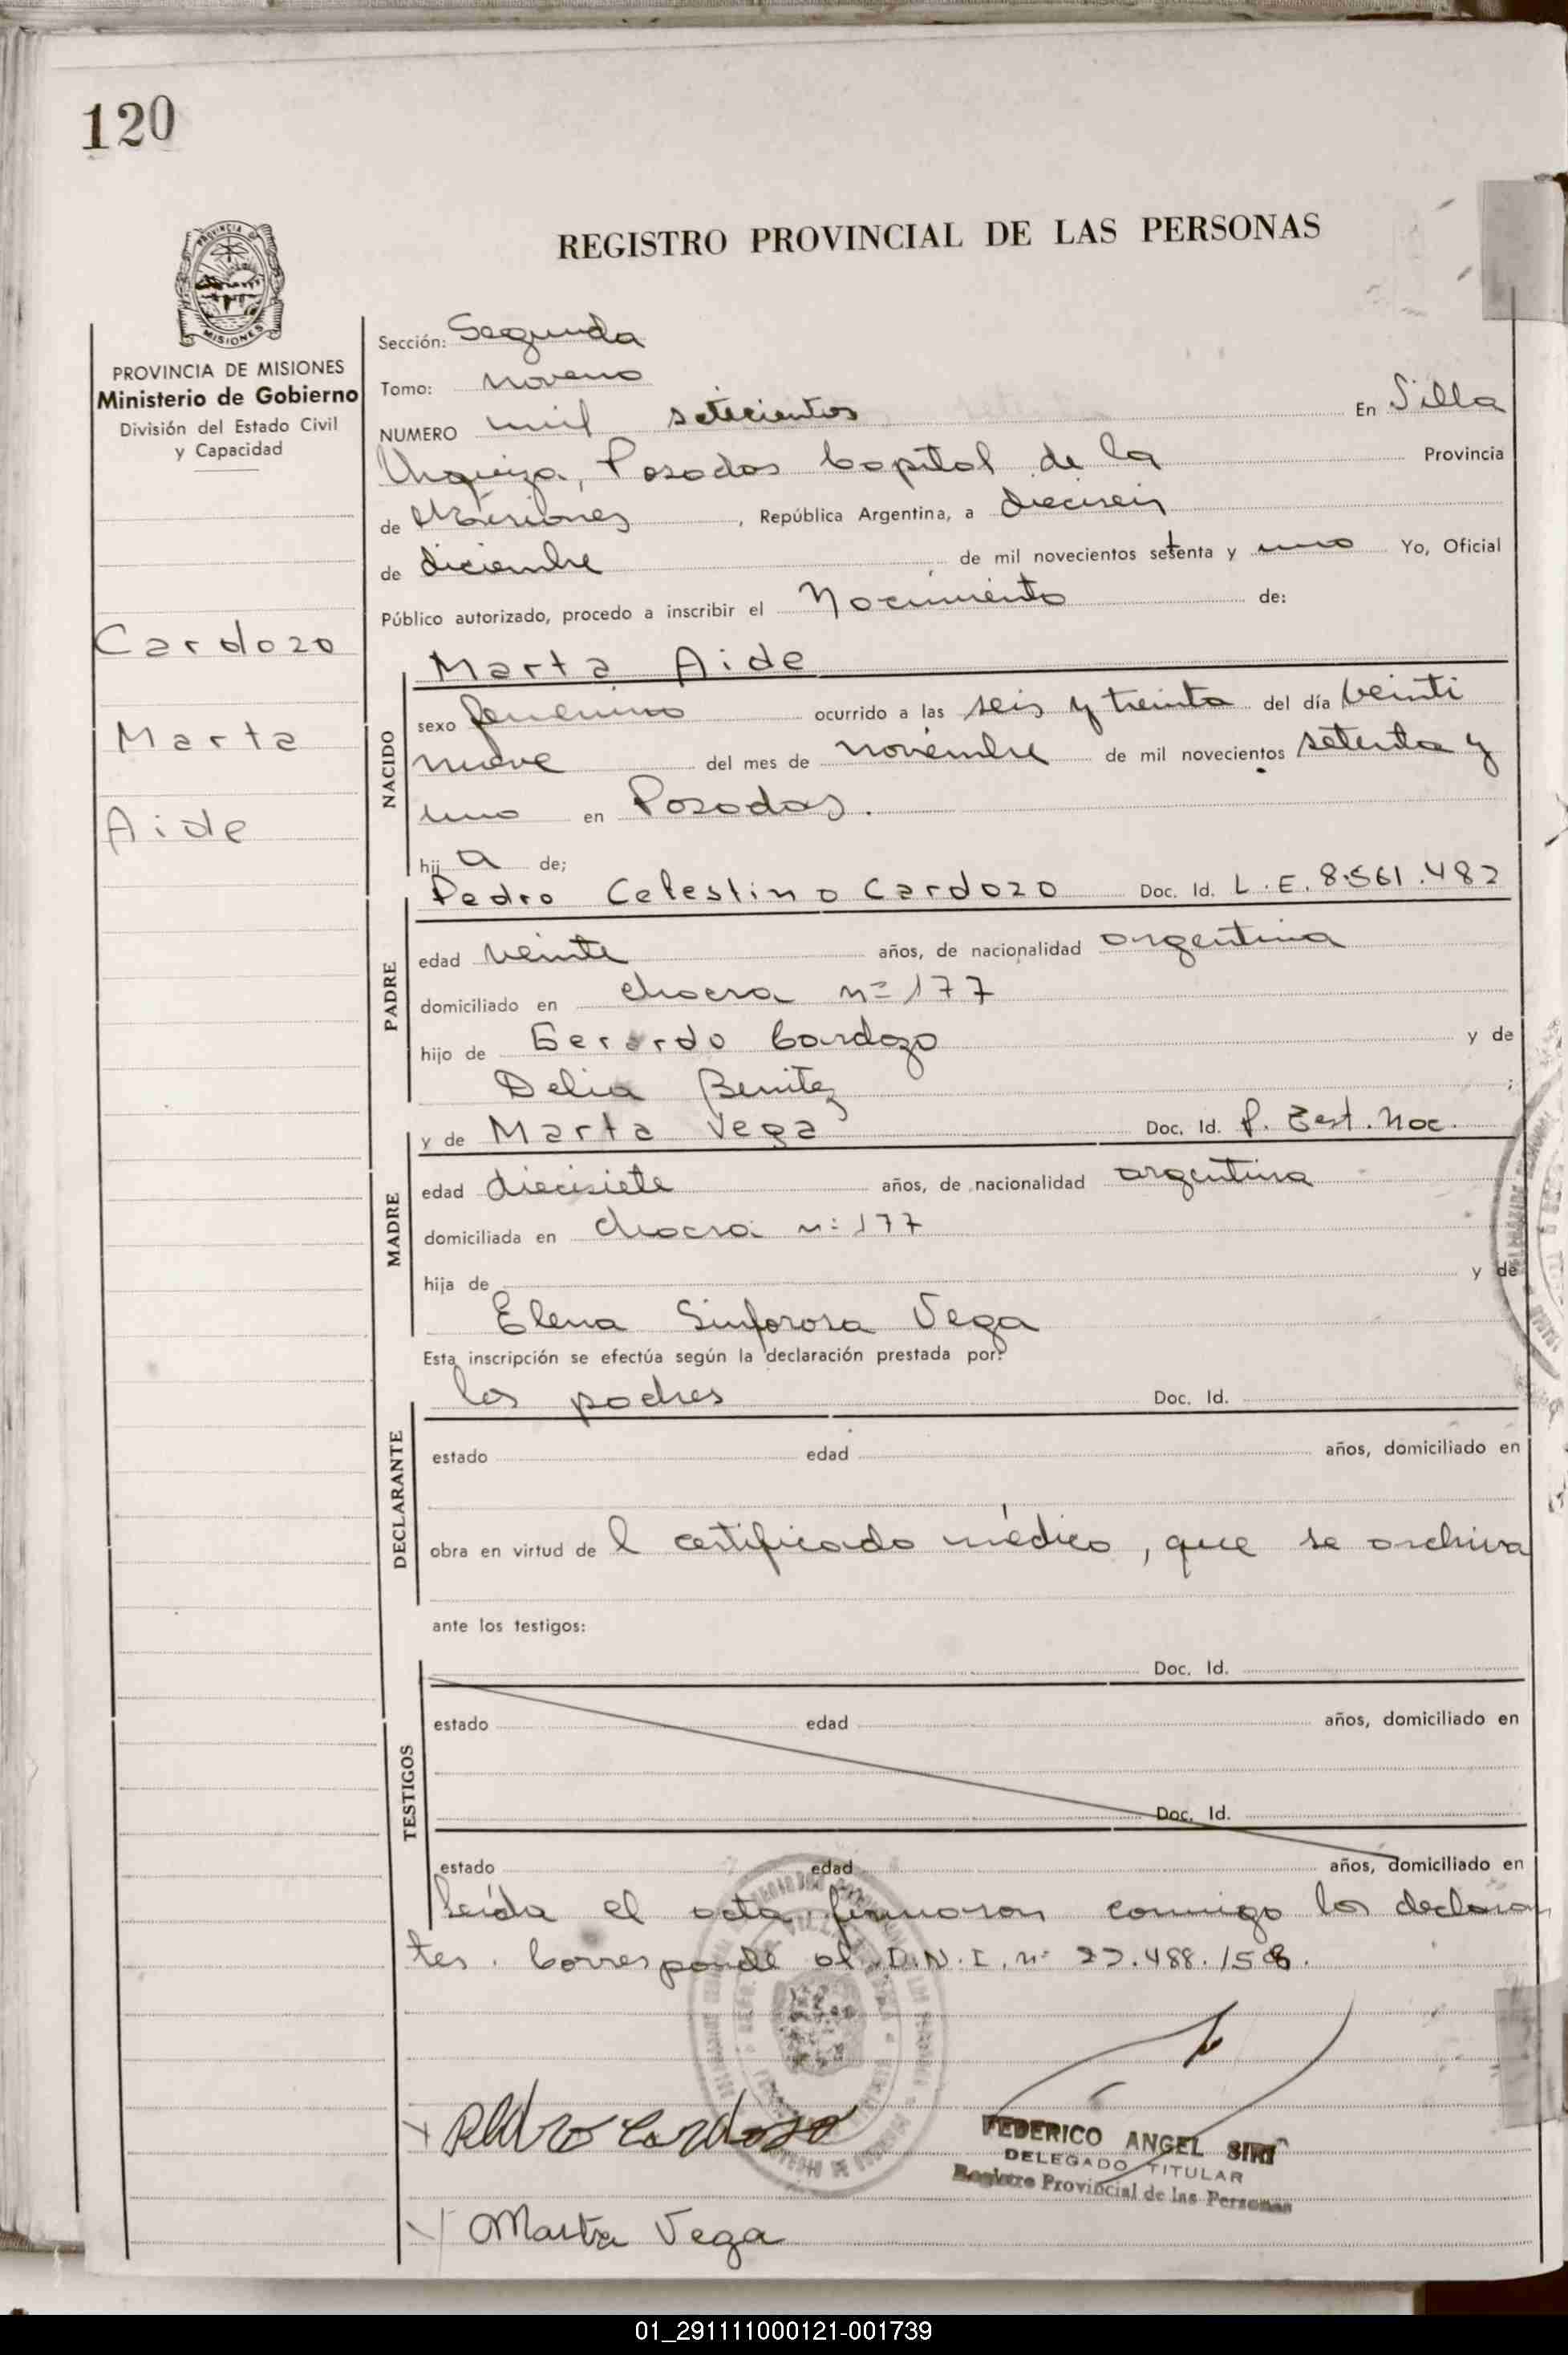 120
REGISTRO PROVINCIAL DE LAS PERSONAS
PROVINCIA DE MISIONES
Ministerio de Gobierno
División del Estado Civil
y Capacidad
Cardozo
Marta
Aide
Sección: Segunda
Tomo: noveno
NUMERO mil setecientos En Villa
Urquiza, Posadas Capital de la Provincia
de Misiones, República Argentina, a dieciseis
de diciembre de mil novecientos setenta y uno Yo, Oficial
Público autorizado, procedo a inscribir el Nacimiento de:
Marta Aide
NACIDO
sexo femenino ocurrido a las seis y treinta del día veinti
nueve del mes de noviembre de mil novecientos setenta y
uno en Posadas.
hij a de;
Pedro Celestino Cardozo Doc. Id. L.E. 8.561.482
PADRE
edad veinte años, de nacionalidad argentina
domiciliado en chacra nº 177
hijo de Gerardo Cardozo y de
Delia Benitez ;
y de Marta Vega Doc. Id. P. Cert. Nac.
MADRE
edad diecisiete años, de nacionalidad argentina
domiciliada en chacra nº 177
hija de y de
Elena Sinforosa Vega
Esta inscripción se efectúa según la declaración prestada por:
los padres Doc. Id.
DECLARANTE
estado edad años, domiciliado en
obra en virtud de l certificado médico, que se archiva
ante los testigos:
Doc. Id.
TESTIGOS
estado edad años, domiciliado en
Doc. Id.
estado edad años, domiciliado en
Leída el acta firmaron conmigo los declaran
tes. Corresponde al D.N.I. nº 22.488.158.
Pedro Cardozo
FEDERICO ANGEL SIRI
DELEGADO TITULAR
Registro Provincial de las Personas
Marta Vega
01_291111000121-001739